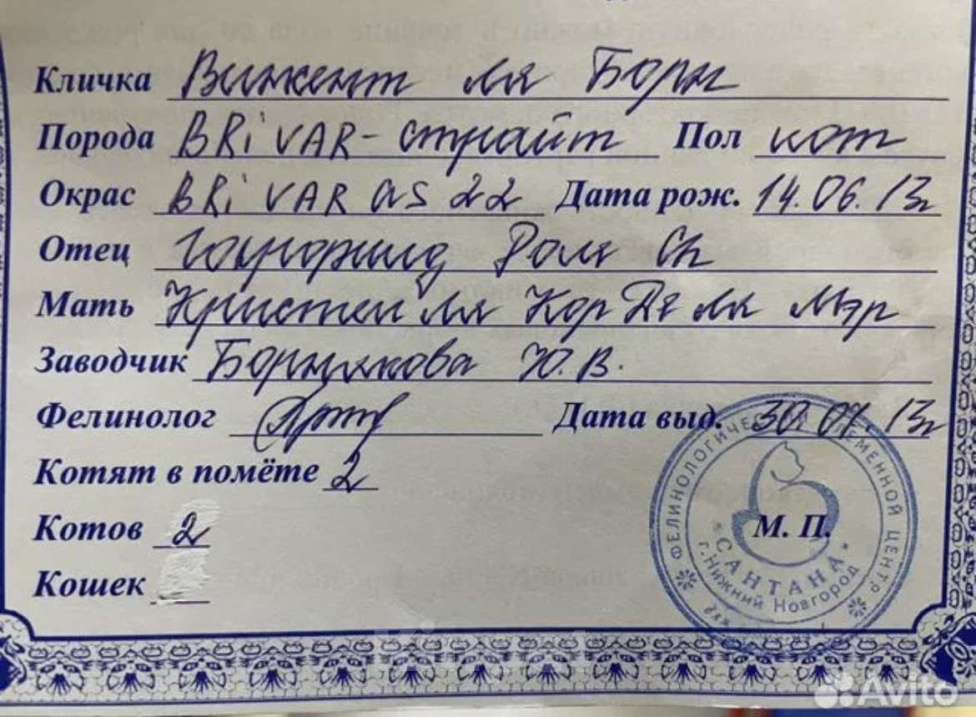 Кличка Винсент ля Борн
Порода BRi VAR - страйт Пол кот
Окрас BRi VAR as 22 Дата рож. 14.06.13г
Отец
Мать Кристен ля Кор Де ля Мэр
Заводчик Ю.В.
Фелинолог Дата выд. 30.07.13г
Котят в помёте 2
Котов 2
Кошек
М. П.
ФЕЛИНОЛОГИЧЕСКИЙ ПЛЕМЕННОЙ ЦЕНТР
«САНТАНА»
г. Нижний Новгород
Avito